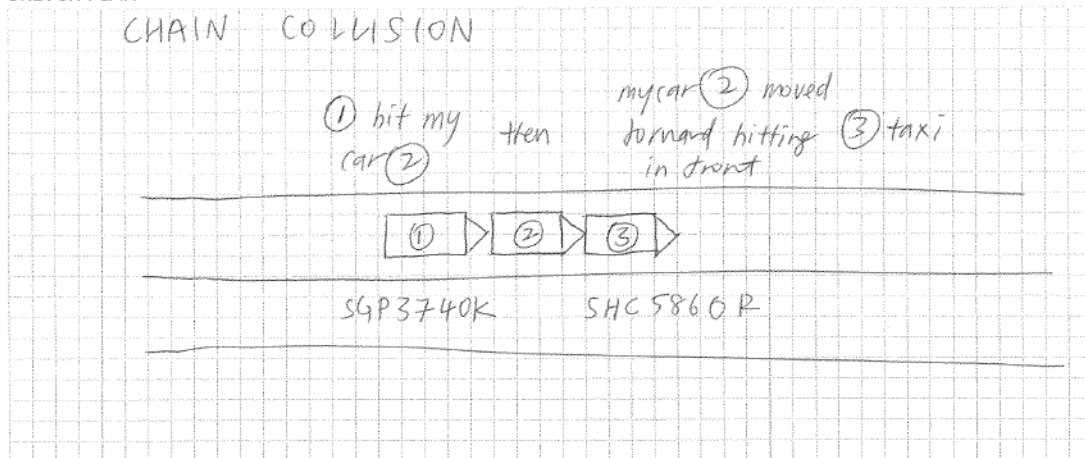 CHAIN COLLISION
① hit my then
car ②
my car ② moved
forward hitting ③ taxi
in front
① ② ③
SGP3740K SHC5860R